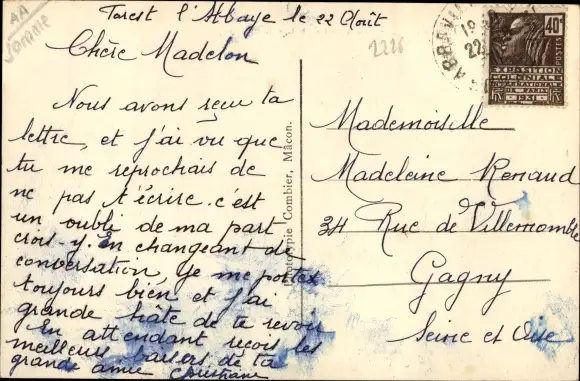 AA
Somme
Forest l'Abbaye le 22 Août
2226
Chère Madelon
Nous avons reçu ta
lettre, et j'ai vu que
tu me reprochais de
ne pas t'écrire. c'est
un oubli de ma part
crois-y. En changeant de
conversation, je me portes
toujours bien et j'ai
grande hâte de te revoir
En attendant reçois les
meilleurs baisers de ta
grande amie Christiane
Phototypie Combier, Mâcon.
22
40c
POSTES
EXPOSITION
COLONIALE
INTERNATIONALE
DE PARIS
1931
Mademoiselle
Madeleine Renaud
34 Rue de Villemomble
Gagny
Seine et Oise